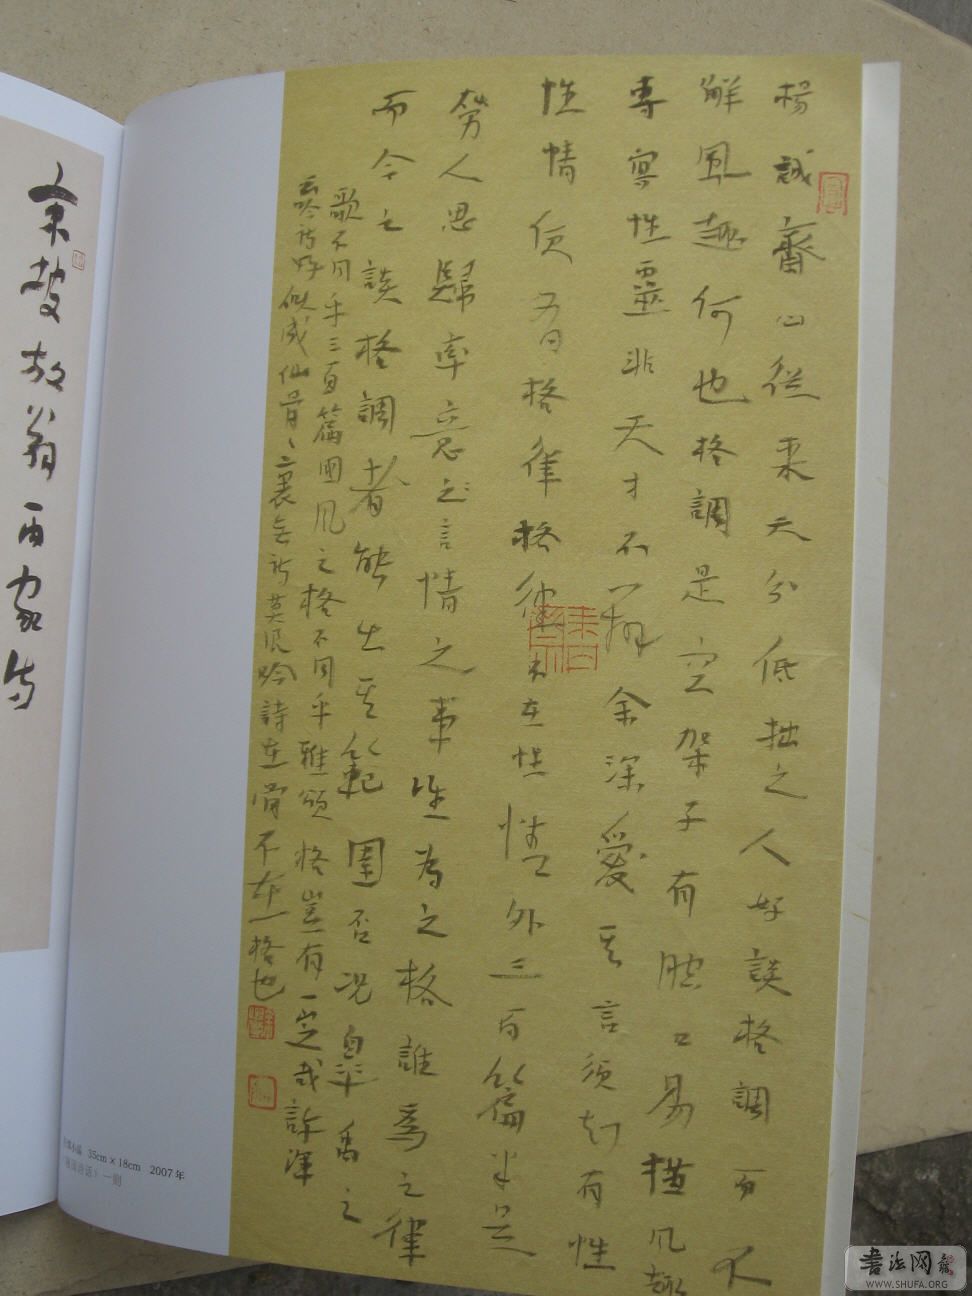 楊誠齋曰從来天分低拙之人好談格調而不
解風趣何也格調是空架子有腔口易描風趣
專寫性靈非天才不辦余深愛其言須知有性
性情便有格律格律不在性情外三百篇半是
勞人思歸率意之言情之事唯為之格誰為之律
而今之談格調者能出其範圍否况皋禹之
歌不同乎三百篇國風之格不同乎雅頌格豈有一定哉許渾
云吟詩好似成仙骨〻裏無詩莫浪吟詩在骨不在格也
東坡放翁两家詩
小品 35cm×18cm 2007年
诗话》一则
书法网
WWW.SHUFA.ORG